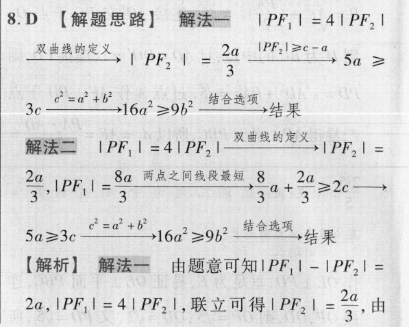 8. D 【解题思路】 解法一 |PF₁| = 4|PF₂|
—双曲线的定义→ |PF₂| = 2a/3 —|PF₂|≥c-a→ 5a ≥
3c —c²=a²+b²→ 16a²≥9b² —结合选项→ 结果
解法二 |PF₁| = 4|PF₂| —双曲线的定义→ |PF₂| =
2a/3, |PF₁| = 8a/3 —两点之间线段最短→ 8/3 a + 2a/3 ≥ 2c →
5a≥3c —c²=a²+b²→ 16a²≥9b² —结合选项→ 结果
【解析】 解法一 由题意可知|PF₁| - |PF₂| =
2a, |PF₁| = 4|PF₂|, 联立可得|PF₂| = 2a/3, 由